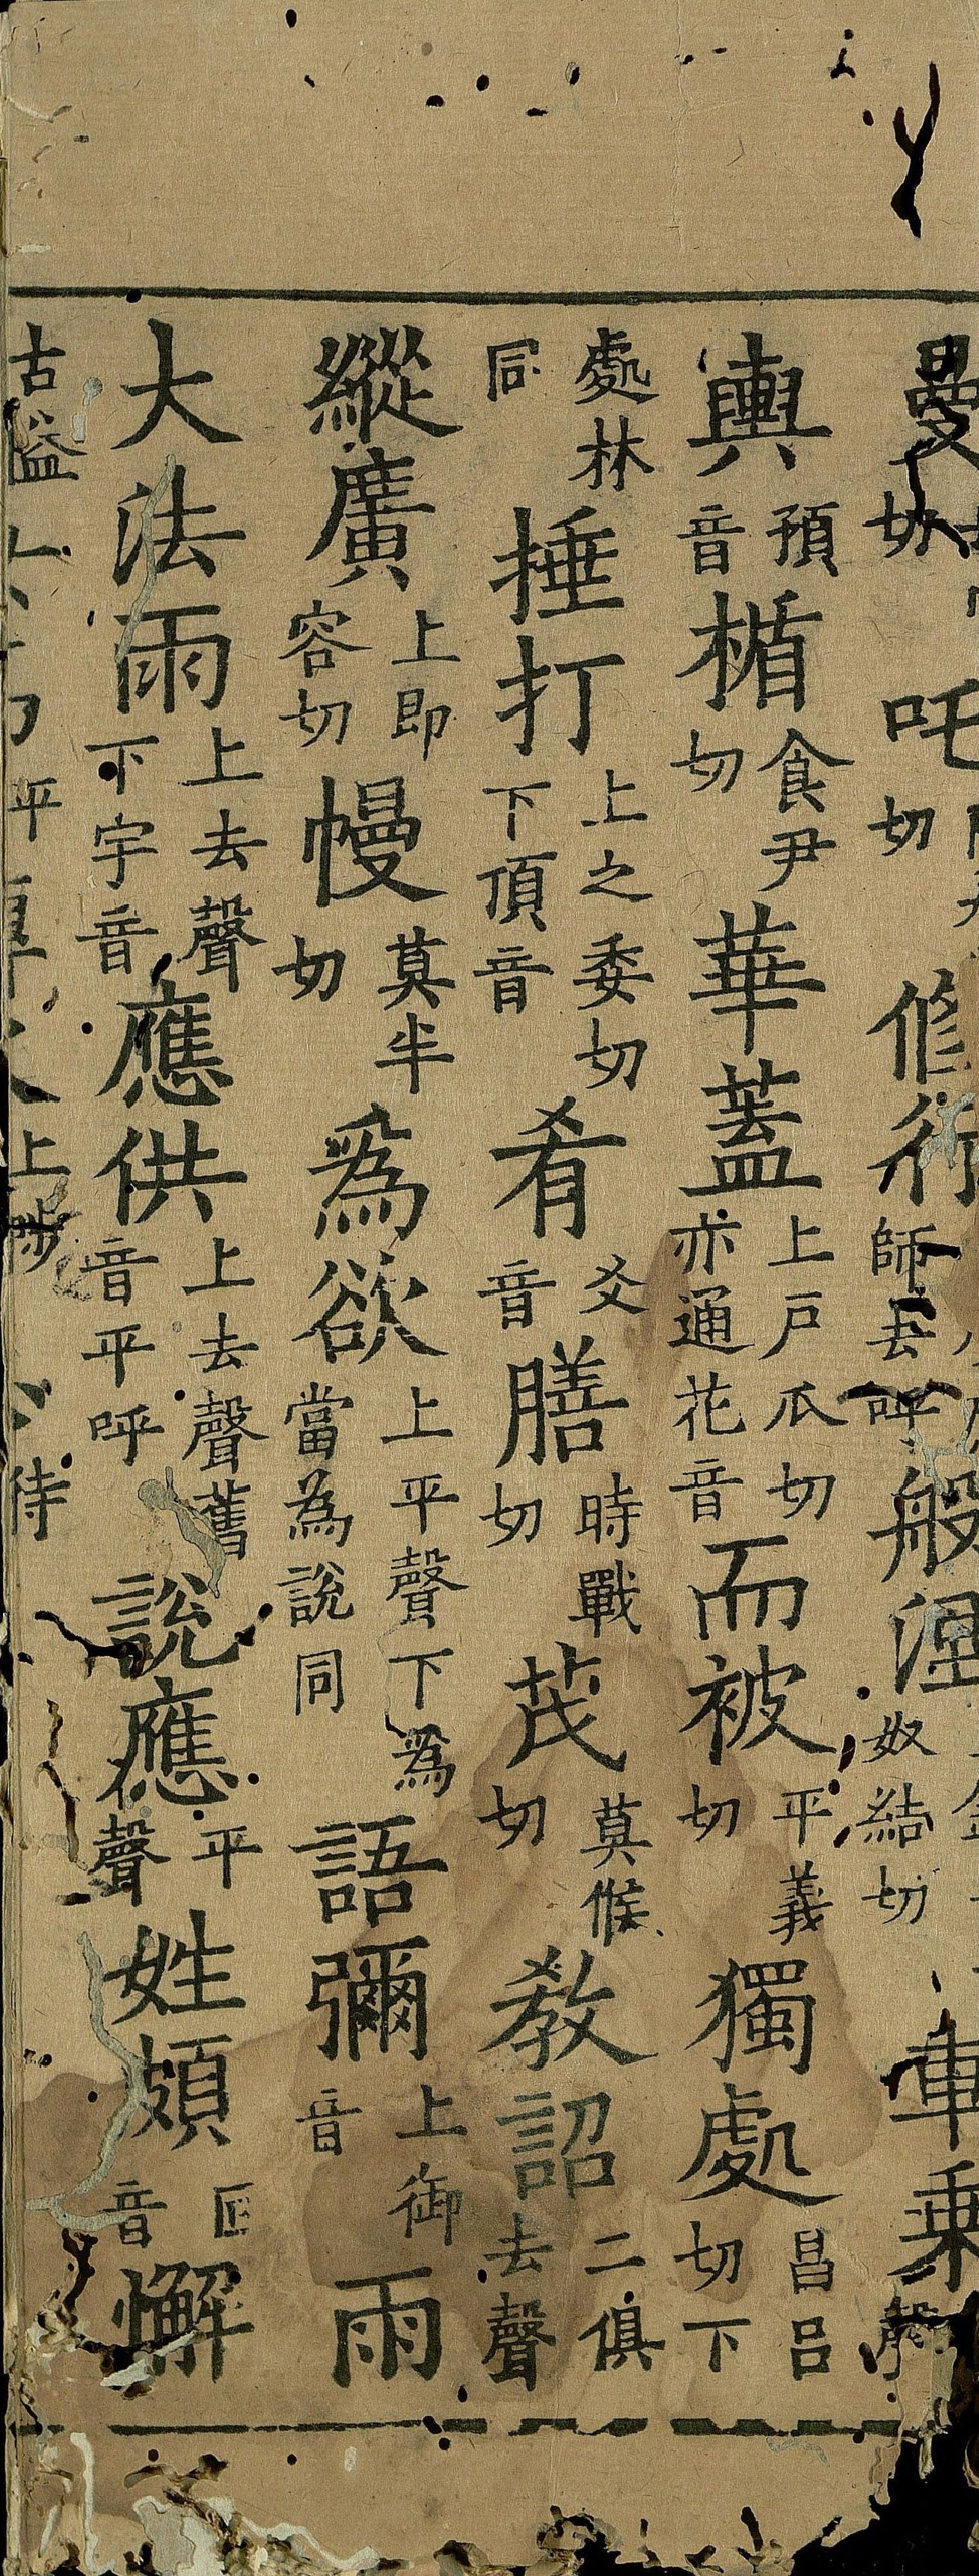 曼切吒切修行師去呼般涅奴結切車乘聲
輿預音楯食尹切華蓋上戶瓜切亦通花音而被平義切獨處昌呂切下
處林同捶打上之委切下頂音肴爻音膳時戰切茂莫候切教詔二俱去聲
縱廣上即容切幔莫半切爲欲上平聲下爲當為說同語彌上御音雨
大法雨上去聲下宇音應供上去聲舊音平呼說應平聲姓頗叵音懈
古隘切平上步侍